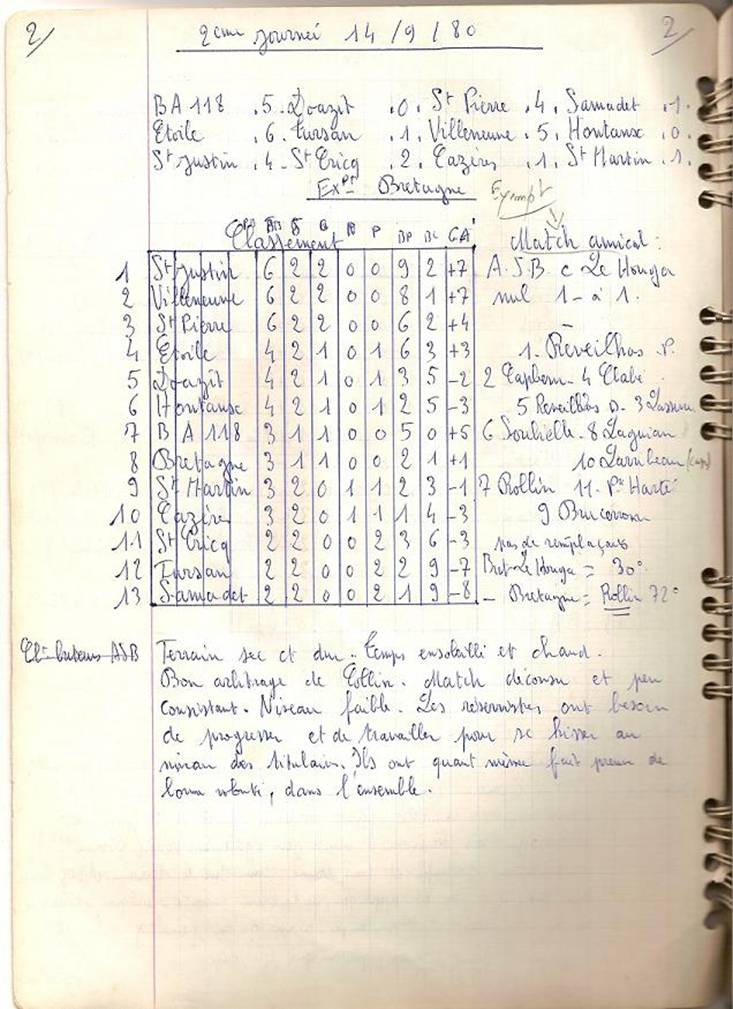 2/ 2ème journée 14/9/80 2/
BA 118 .5. Doazit .0. St Pierre .4. Samadet .1.
Etoile .6. Tursan .1. Villeneuve .5. Hontanx .0.
St Justin .4. St Cricq .2. Cazères .1. St Martin .1.
Expt Bretagne Exempt
Classement J G N P BP BC GA
Match amical :
1 St Justin 6 2 2 0 0 9 2 +7 A.S.B. c Le Houga
2 Villeneuve 6 2 2 0 0 8 1 +7 nul 1 - à 1.
3 St Pierre 6 2 2 0 0 6 2 +4
4 Etoile 4 2 1 0 1 6 3 +3 1. Reveilhas P.
5 Doazit 4 2 1 0 1 3 5 -2 2 Capbern - 4
6 Hontanx 4 2 1 0 1 2 5 -3 5 Reveilhas D. 3
7 BA 118 3 1 1 0 0 5 0 +5 6 Soubielle - 8 Laguian
8 Bretagne 3 1 1 0 0 2 1 +1 10 Larribeau (cap)
9 St Martin 3 2 0 1 1 2 3 -1 7 Rollin 11.
10 Cazères 3 2 0 1 1 1 4 -3 9
11 St Cricq 2 2 0 0 2 3 6 -3 pas de remplaçants
12 Tursan 2 2 0 0 2 2 9 -7 Bret-Le Houga = 30°
13 Samadet 2 2 0 0 2 1 9 -8 - Bretagne = Rollin 72°
Clt buteurs ASB Terrain sec et dur - Temps ensoleillé et chaud.
Bon arbitrage de Collin. Match décousu et peu
consistant. Niveau faible. Les réservistes ont besoin
de progresser et de travailler pour se hisser au
niveau des titulaires. Ils ont quant même fait preuve de
bonne volonté, dans l'ensemble.